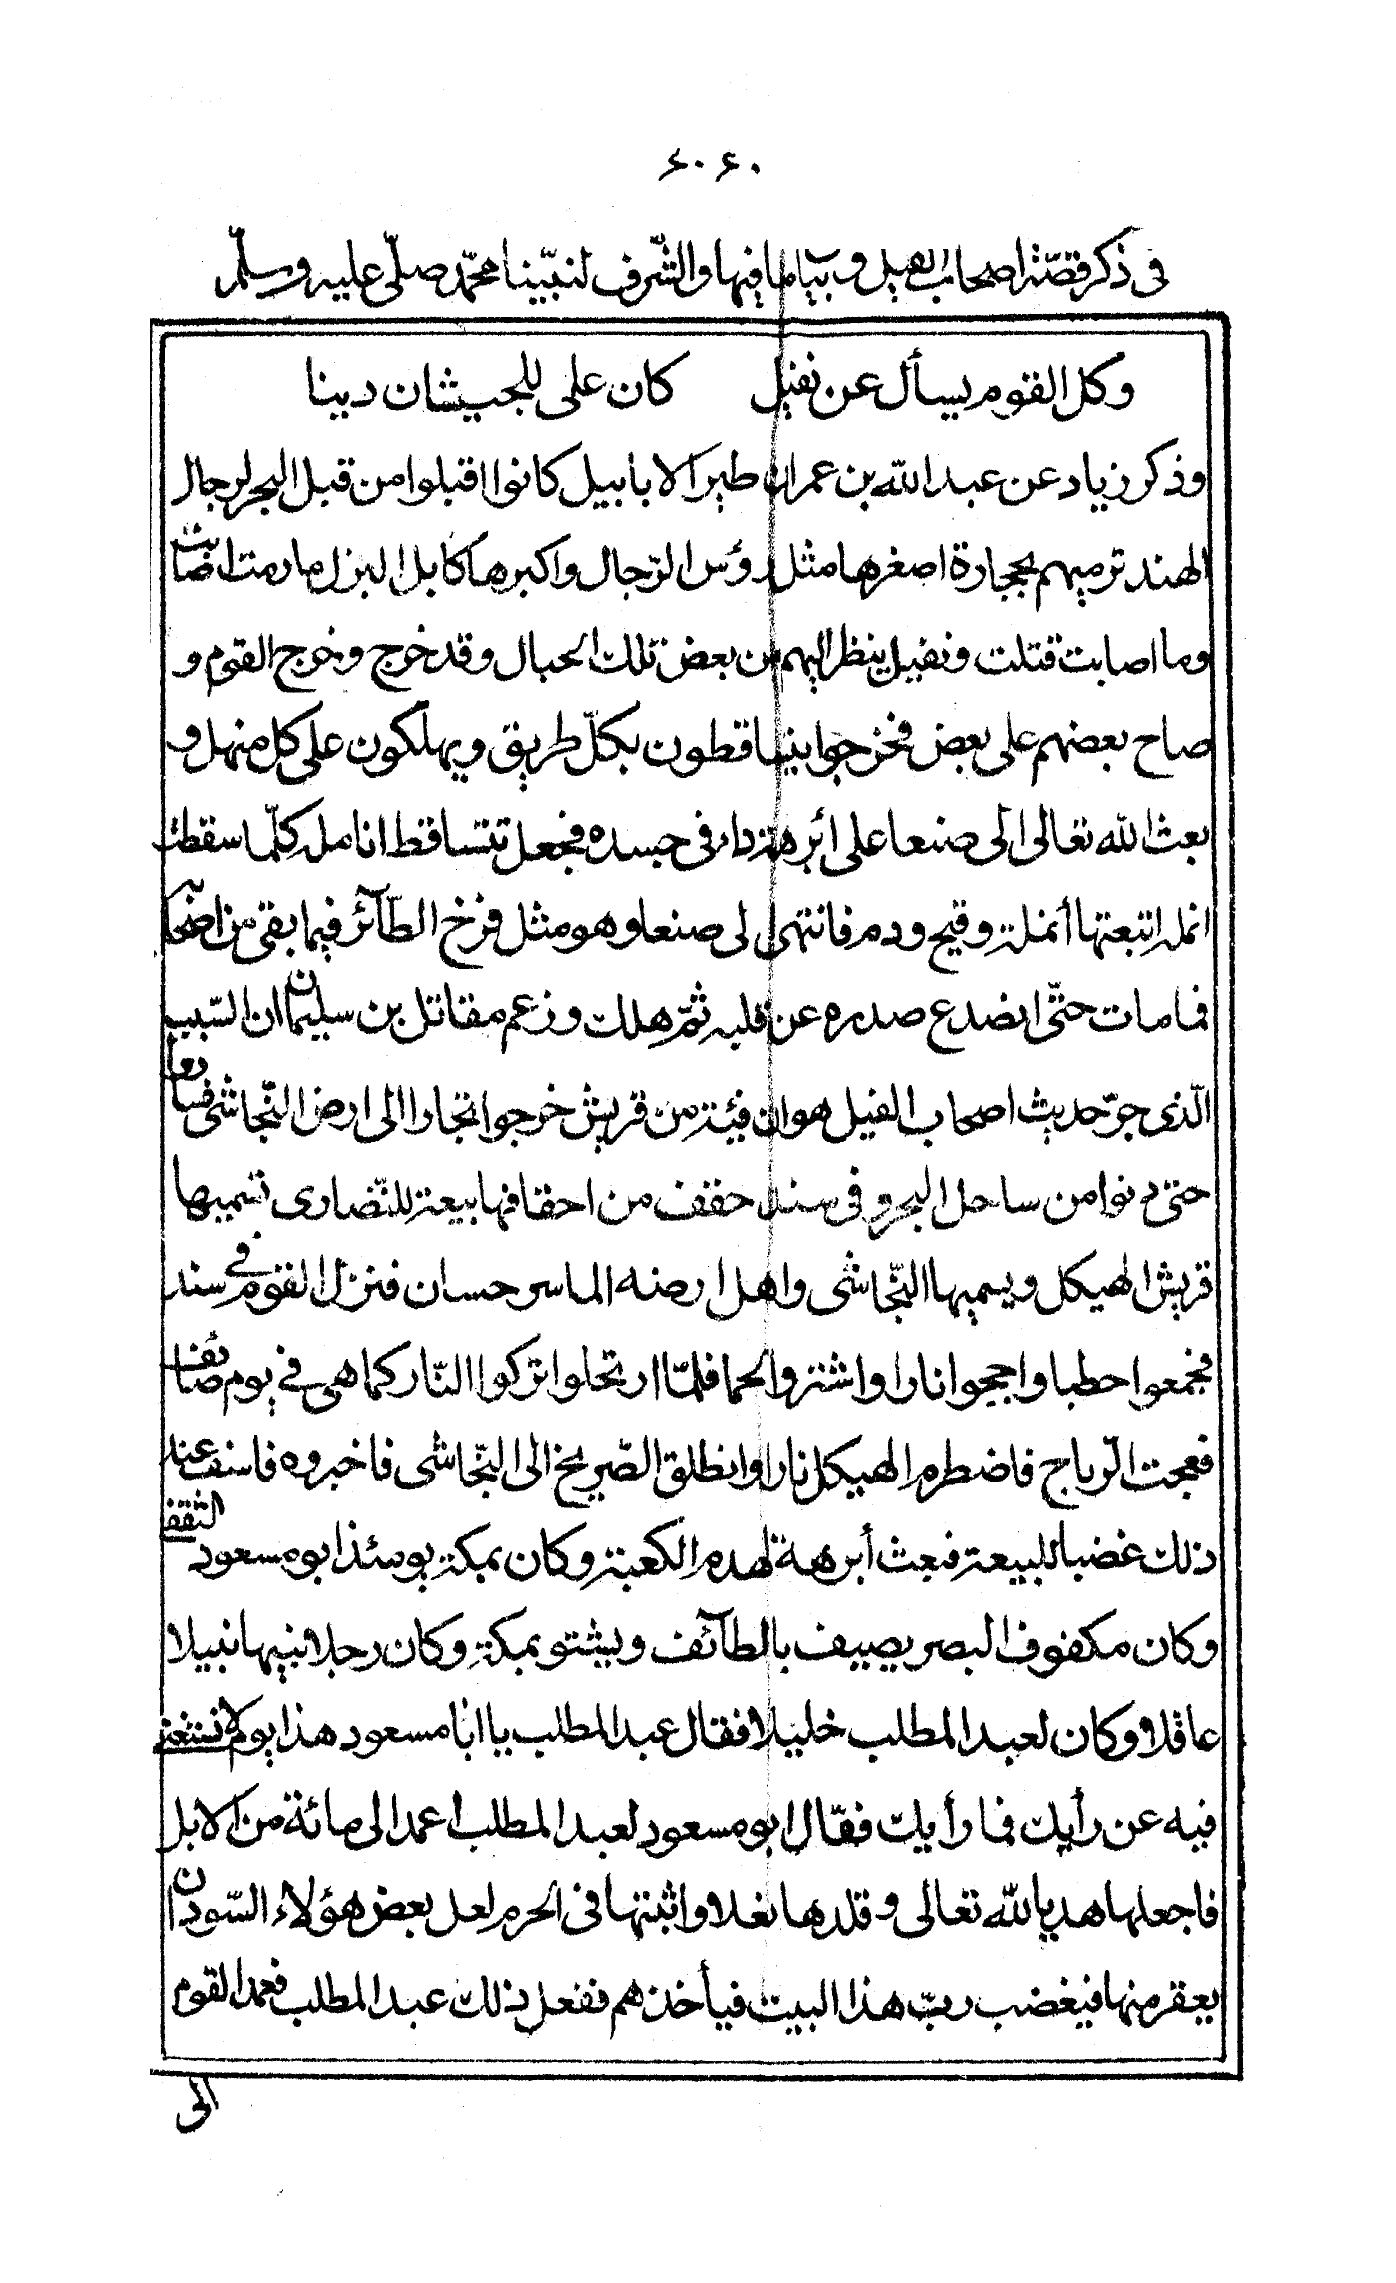 ۶۰۶۰
فی ذکر قصّة اصحاب الفیل و بیان ما فیها و الشّرف لنبیّنا محمّد صلّی علیه و سلّم
وكل القوم يسأل عن نفيل كان على للحبشان دينا
وذكر زياد عن عبد الله بن عمران طيرا الابابيل كانوا اقبلوا من قبل البحر لرجال
الهند ترميهم بحجارة اصغرها مثل رؤس الرّجال واكبرها كابل البزل ما رمت اصابت
وما اصابت قتلت ونفيل ينظر اليهم من بعض تلك الجبال وقد خرج وخرج القوم و
صاح بعضهم على بعض فخرجوا يتساقطون بكلّ طريق ويهلكون على كل منهل و
بعث الله تعالى الى صنعا على ابرهة داء في جسده فجعل تتساقط انامله كلّما سقطت
انملة اتبعتها أنملة وقيح ودم فانتهى الى صنعا وهو مثل فرخ الطّآئر فيما بقى من اصحابه
فما مات حتّى انصدع صدره عن قلبه ثمّ هلك وزعم مقاتل بن سليمان ان السّبب
الّذى جرّ حديث اصحاب الفيل هو ان فئة من قريش خرجوا تجارا الى ارض النّجاشى فساروا
حتى دنوا من ساحل البحر وفى سند حقف من احقافها بيعة للنّصارى تسميها
قريش الهيكل ويسميها النّجاشى واهل ارضه الماسرحسان فنزل القوم في سند
فجمعوا حطبا واججوا نارا واشتروا لحما فلمّا ارتحلوا تركوا النّار كما هى في يوم صائف
فعجت الرّياح فاضطرم الهيكل نارا وانطلق الصّريخ الى النّجاشى فاخبروه فاسف عند
ذلك غضبا للبيعة فبعث أبرهة لهدم الكعبة وكان بمكة يومئذ ابو مسعود الثقفى
وكان مكفوف البصر يصيف بالطآئف ويشتو بمكة وكان رجلا نبيها نبيلا
عاقلا وكان لعبد المطلب خليلا فقال عبد المطلب يا ابا مسعود هذا يوم لا تستغنى
فيه عن رأيك فما رأيك فقال ابو مسعود لعبد المطلب أعمد الى مائة من الابل
فاجعلها هديا لله تعالى وقلدها نعلا واثبتها فى الحرم لعل بعض هؤلاء السّودان
يعقر منها فيغضب ربّ هذا البيت فيأخذهم ففعل ذلك عبد المطلب فعمد القوم
الى